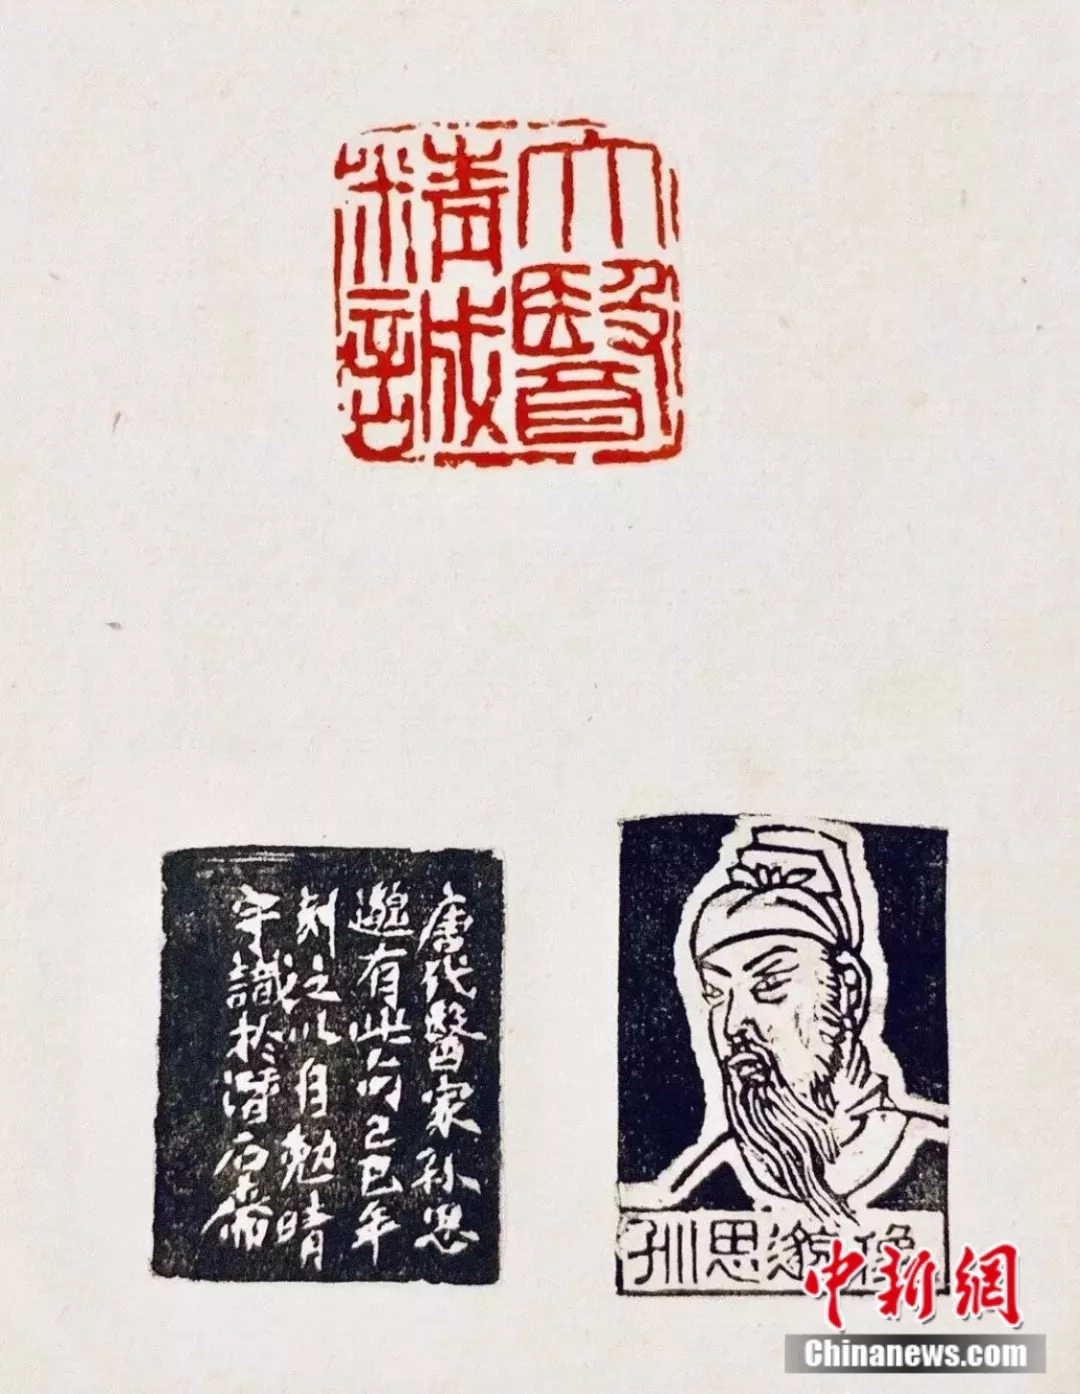 大醫
精誠
唐代醫家孙思
邈有此句己巳年
刻之以自勉晴
宇識於潛石齋
孫思邈像
中新網
Chinanews.com